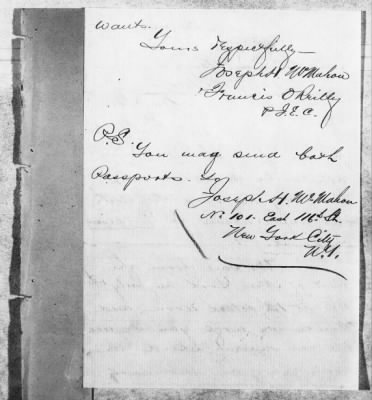 wants.
Yours respectfully
Joseph H. McMahon
Francis O'Reilly
P.S.
You may send both
Passports to
Joseph H. McMahon
No 101. East 116th St.
New York City
N.Y.